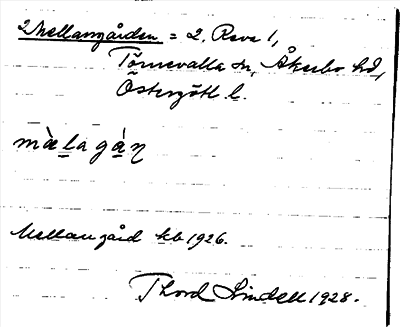 2 Mellangården = 2, Reva 1,
Törnevalla sn, Åkerbo hd,
Östergötl l.
mὰḷa gά̱ɳ
Mellangård kb 1926.
Thord Lindell 1928.